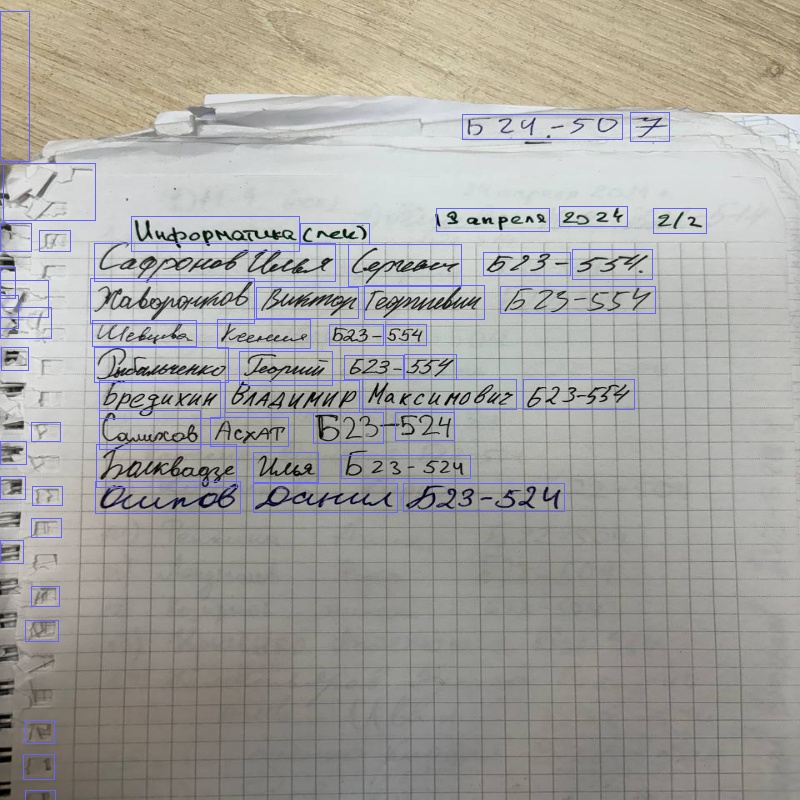 Б24.-507
Информатика (лек) 13 апреля 2024 2/2
Сафронов Илья Сергеевич Б23-554.
Жаворонков Виктор Георгиевич Б23-554
Шевцова Ксения Б23-554
Рыбальченко Георгий Б23-554
Бредихин Владимир Максимович Б23-554
Салихов Асхат Б23-524
Болквадзе Илья Б23-524
Осипов Данил Б23-524